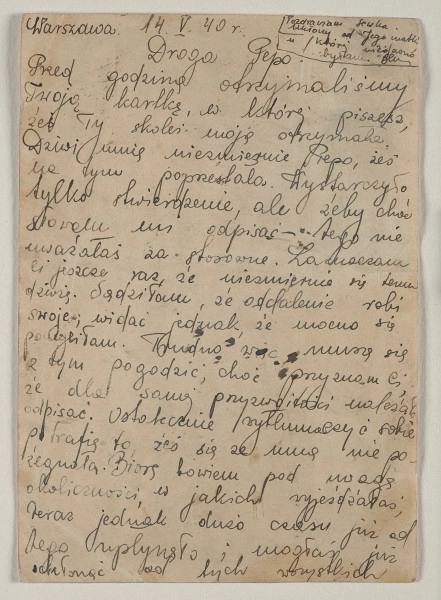 Warszawa. 14. V. 40 r.
Pozdrawiam
od Jego matki
u której niedawno
byłam.
Droga Pepo.
Przed godziną otrzymaliśmy
Twoją kartkę, w której piszesz,
żeś Ty skolei moją otrzymała.
Dziwi mnie niezmiernie Pepo, żeś
na tym poprzestała. Wystarczyło
tylko stwierdzenie, ale żeby choć
słowem mi odpisać – tego nie
uważałaś za stosowne. Zaznaczam
Ci jeszcze raz, że niezmiernie się temu
dziwię. Sądziłam, że oddalenie robi
swoje, widać jednak, że mocno się
pomyliłam. Trudno więc muszę się
z tym pogodzić, choć przyznam Ci,
że dla samej przyzwoitości należało
odpisać. Ostatecznie wytłumaczyć sobie
potrafię to, żeś się ze mną nie po-
żegnała. Biorę bowiem pod uwagę
okoliczności w jakich wyjeżdżałaś,
teraz jednak dużo czasu już od
tego upłynęło i mogłaś już
ochłonąć od tych wszystkich